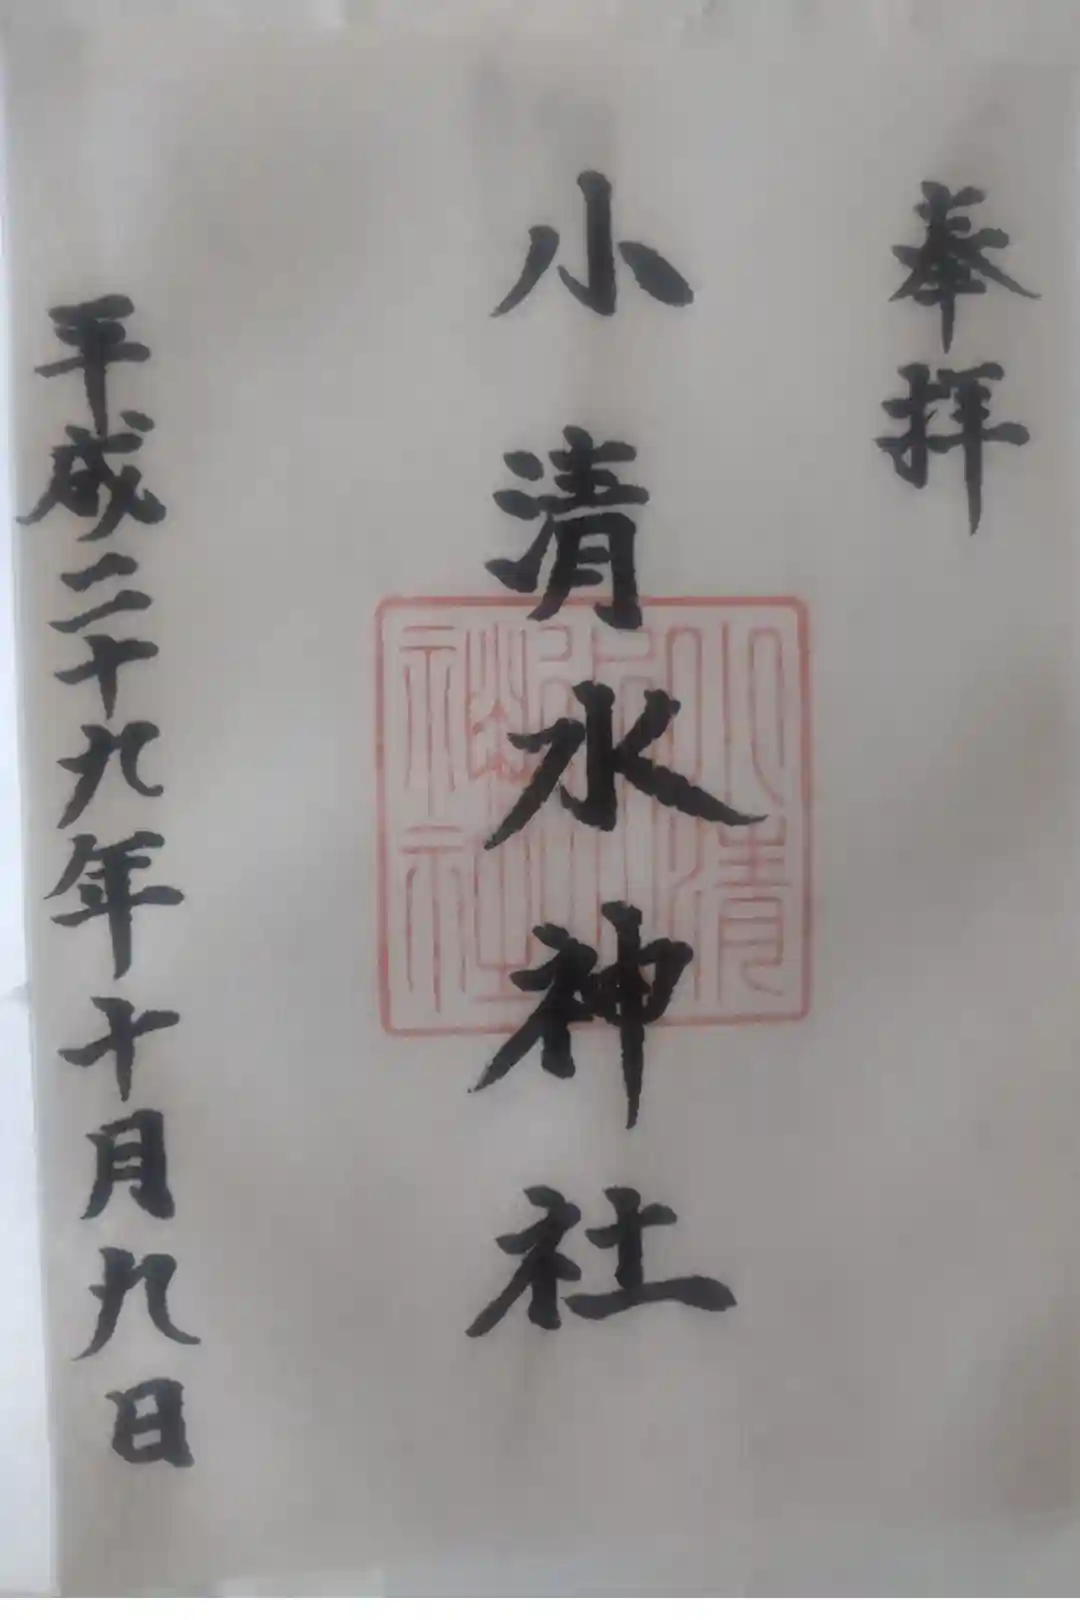 奉拝
小清水神社
平成二十九年十月九日
小清
水
神社